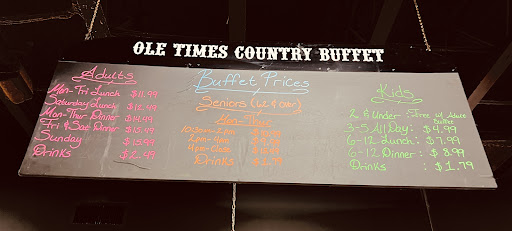 OLE TIMES COUNTRY BUFFET
Adults
Mon-Fri Lunch $11.99
Saturday Lunch $12.49
Mon-Thur Dinner $14.99
Fri & Sat Dinner $15.99
Sunday $15.99
Drinks $2.49
Buffet Prices
Seniors (62 & Older)
Mon-Thur
Drinks $1.79
Kids
2 & Under Free w/ Adult Buffet
3-5 All Day: $4.99
6-12 Lunch: $7.99
6-12 Dinner: $8.99
Drinks : $1.79